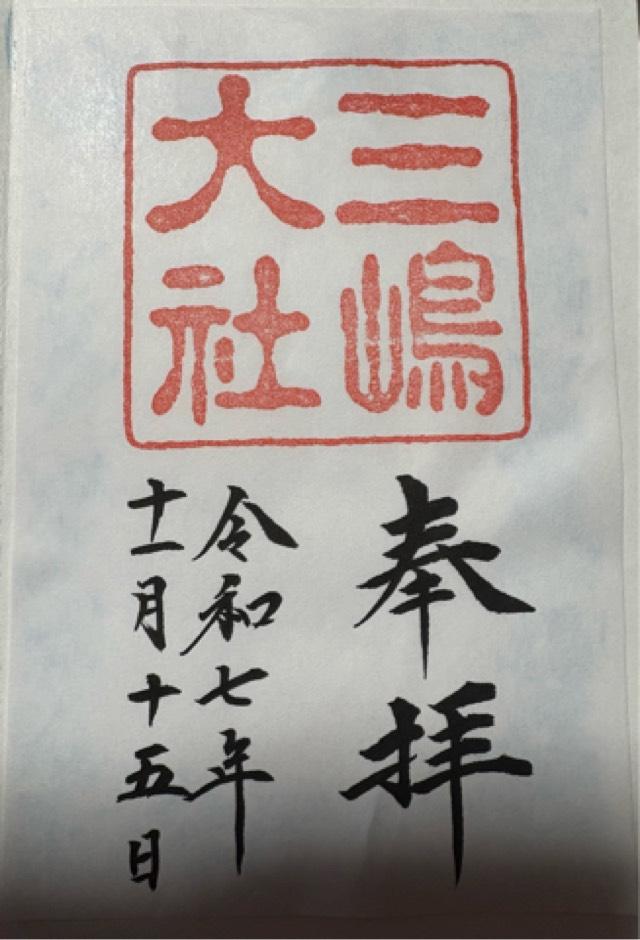 三嶋
大社
奉拝
令和七年
十一月十五日